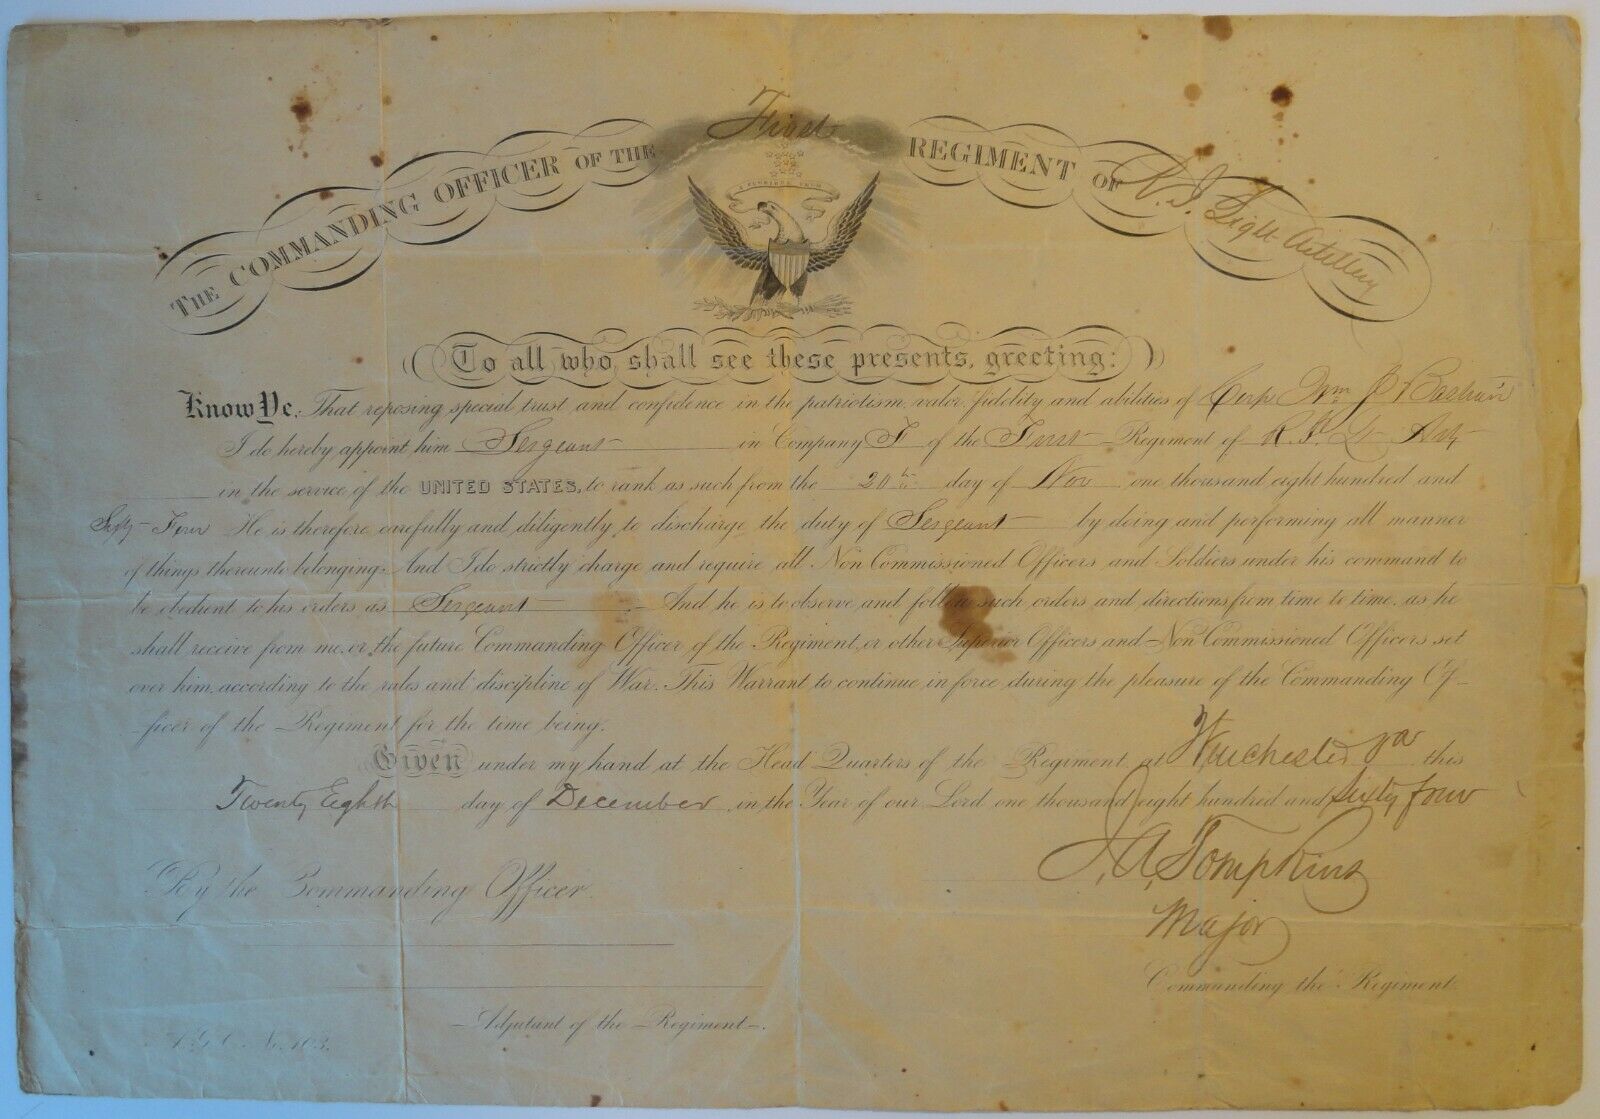 First
THE COMMANDING OFFICER OF THE REGIMENT OF R. I. Light Artillery
E PLURIBUS UNUM
To all who shall see these presents, greeting:
Know Ye, That reposing special trust and confidence in the patriotism, valor, fidelity and abilities of Corp Wm P.
I do hereby appoint him Sergeant in Company F of the First Regiment of R. I. Lt Arty
in the service of the UNITED STATES, to rank as such from the 20th day of Nov one thousand eight hundred and
Sixty-Four He is therefore carefully and diligently to discharge the duty of Sergeant by doing and performing all manner
of things thereunto belonging. And I do strictly charge and require all Non Commissioned Officers and Soldiers under his command to
be obedient to his orders as Sergeant. And he is to observe and follow such orders and directions from time to time, as he
shall receive from me, or the future Commanding Officer of the Regiment, or other Superior Officers and Non Commissioned Officers set
over him, according to the rules and discipline of War. This Warrant to continue in force during the pleasure of the Commanding Of-
-ficer of the Regiment for the time being.
Given under my hand at the Head Quarters of the Regiment, at Winchester Va this
Twenty Eighth day of December, in the Year of our Lord one thousand eight hundred and sixty four
J. A. Tompkins
Major
By the Commanding Officer.
Commanding the Regiment.
Adjutant of the Regiment.
A. G. O. No. 103.